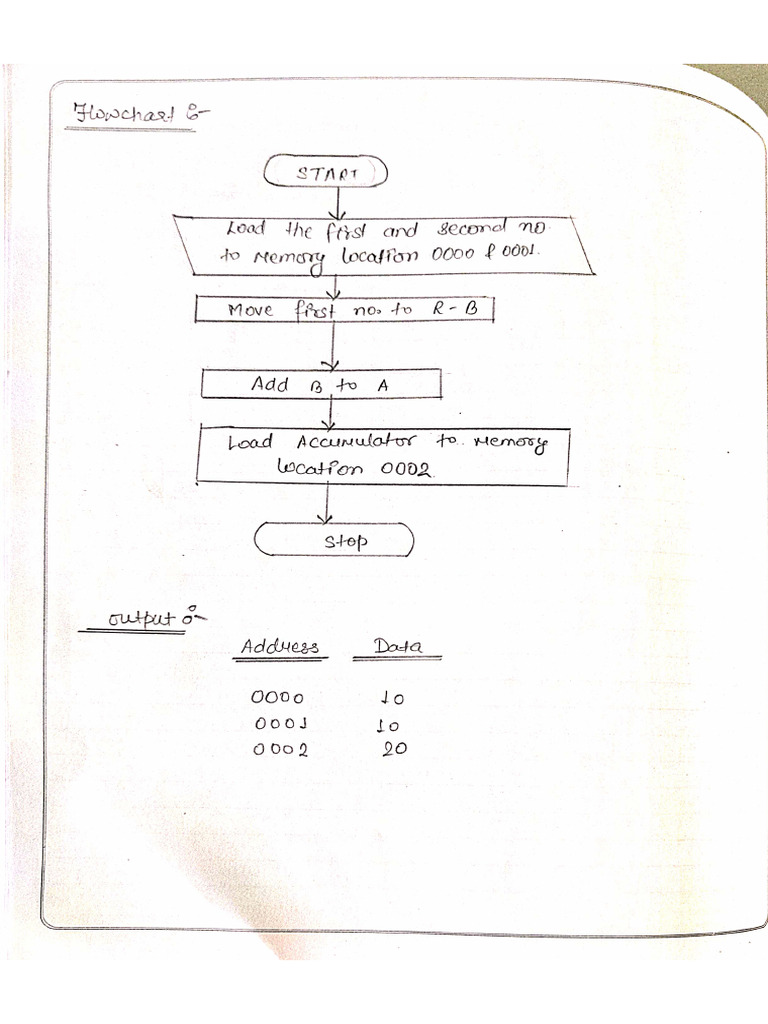 Flowchart :-
START
Load the first and second no.
to Memory location 0000 & 0001.
Move first no. to R-B
Add B to A
Load Accumulator to Memory
location 0002.
Stop
output :-
Address Data
0000 10
0001 10
0002 20